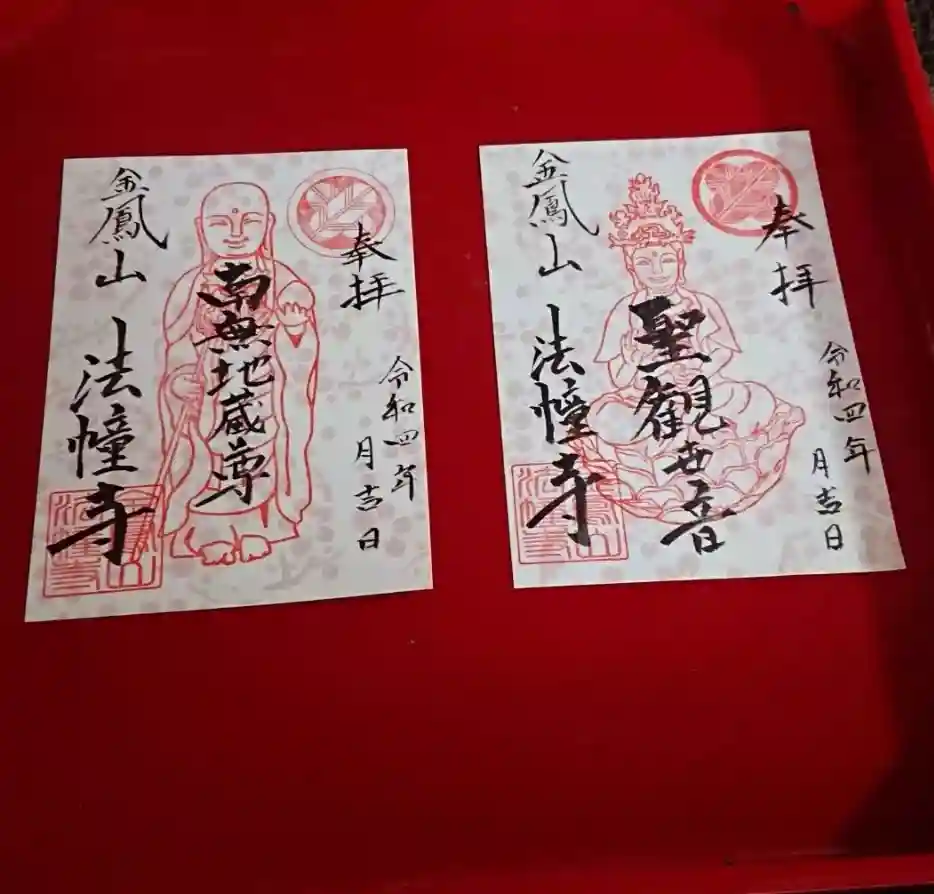 奉拝
令和四年
月吉日
南無地蔵尊
金鳳山 法幢寺
奉拝
令和四年
月吉日
聖観世音
金鳳山 法幢寺